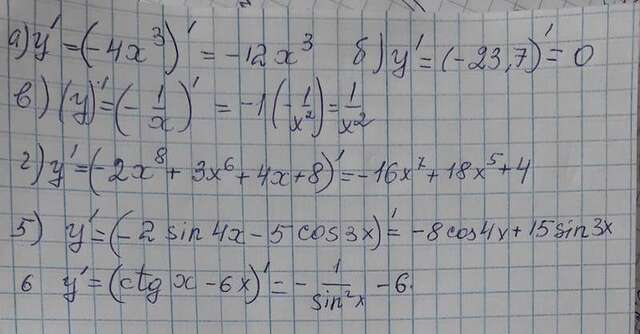 а) y' = (-4x³)' = -12x³ б) y' = (-23,7)' = 0
в) (y)' = (-1/x)' = -1(-1/x²) = 1/x²
г) y' = (-2x⁸ + 3x⁶ + 4x + 8)' = -16x⁷ + 18x⁵ + 4
5) y' = (-2 sin 4x - 5 cos 3x)' = -8 cos 4x + 15 sin 3x
6 y' = (ctg x - 6x)' = - 1/sin²x - 6